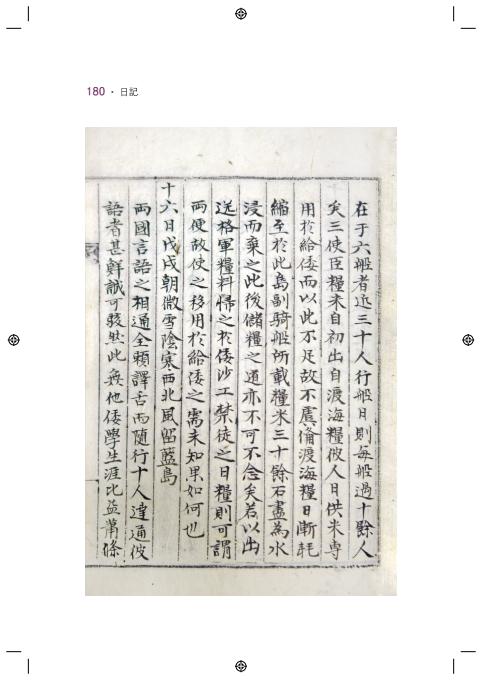 180 • 日記
在于六船者近三十人行船日則每船過十餘人
矣三使臣糧米自初出自渡海糧彼人日供米專
用於給倭而以此不足故不虞備渡海糧日漸耗
縮至於此島副騎船所載糧米三十餘石盡為水
浸而棄之此後儲糧之道亦不可不念矣若以出
送格軍糧料歸之於倭沙工禁徒之日糧則可謂
兩便故使之移用於給倭之需未知果如何也
十六日戊戌朝微雪陰寒西北風留藍島
兩國言語之相通全賴譯舌而隨行十人達通彼
語者甚鮮誠可駭然此無他倭學生涯比益蕭條